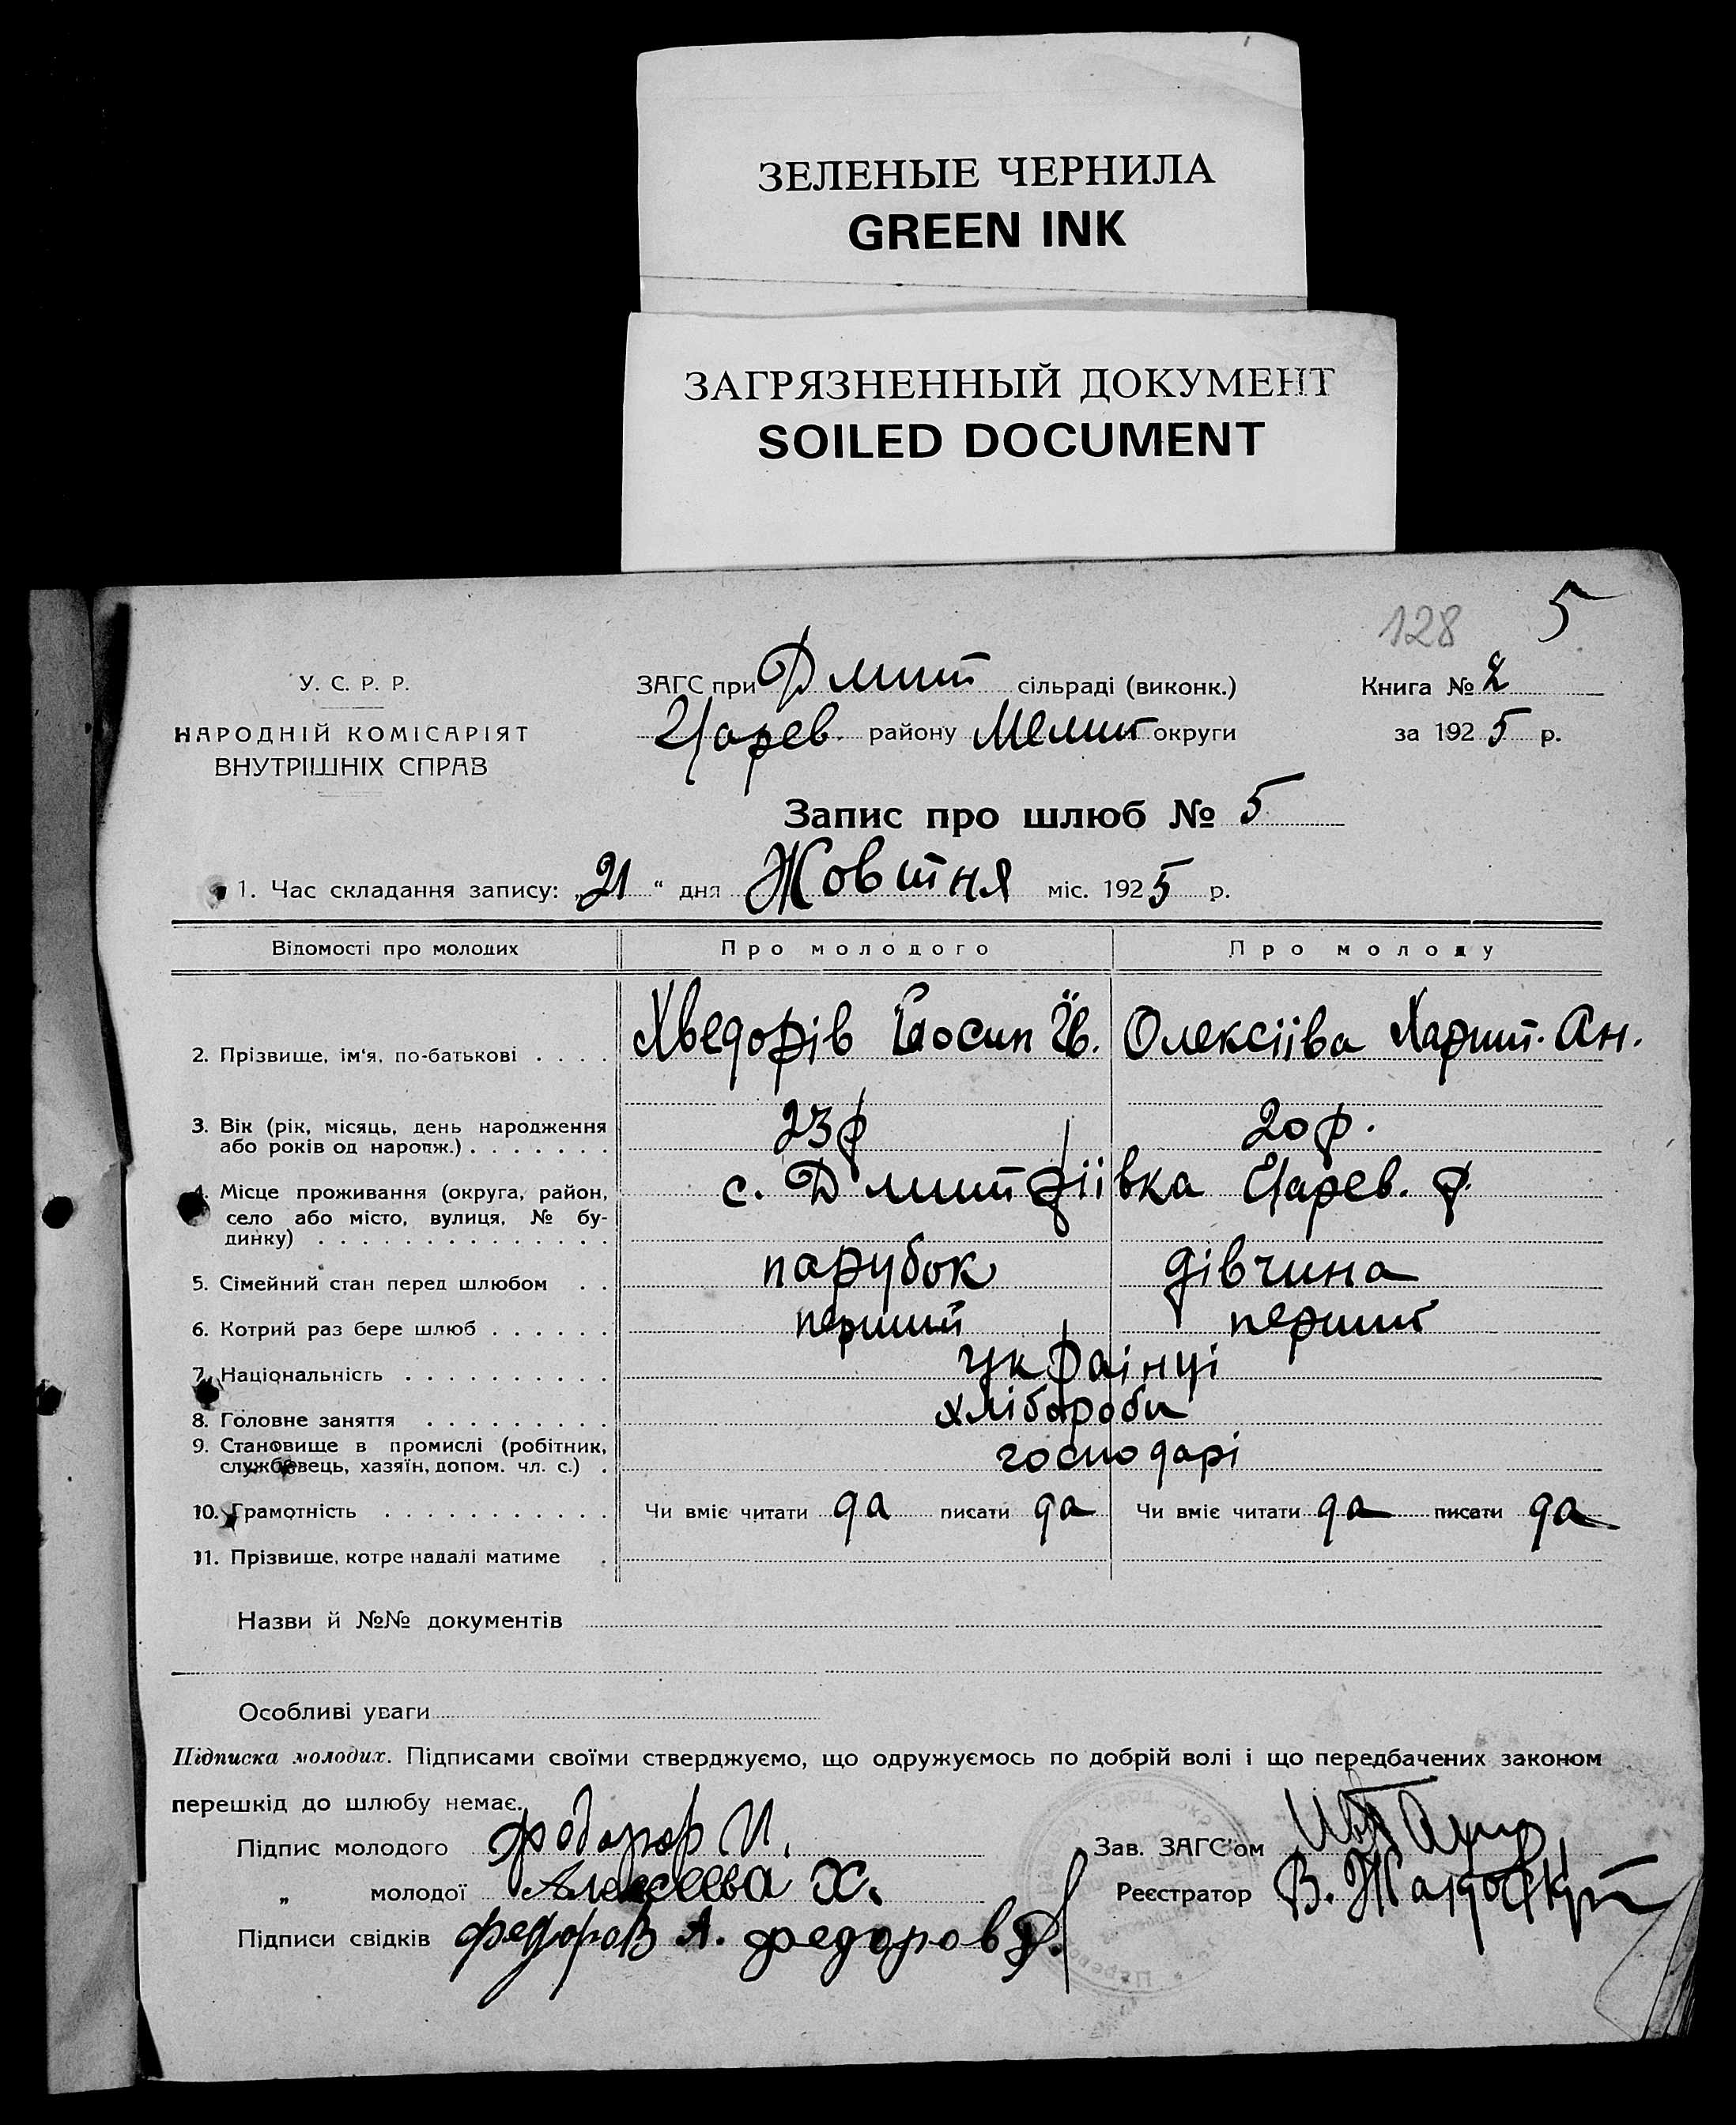 ЗЕЛЕНЫЕ ЧЕРНИЛА
GREEN INK
ЗАГРЯЗНЕННЫЙ ДОКУМЕНТ
SOILED DOCUMENT
128 5
У. С. Р. Р.
НАРОДНІЙ КОМІСАРІЯТ
ВНУТРІШНІХ СПРАВ
ЗАГС при Дмит сільраді (виконк.)
Царев. району Мелит округи
Книга № 2
за 1925 р.
Запис про шлюб № 5
1. Час складання запису: „21" дня Жовтня міс. 1925 р.
Відомості про молодих Про молодого Про молоду
2. Прізвище, ім'я, по-батькові . . . . Хведорів Йосип Ів. Олексіїва Харит. Ан.
3. Вік (рік, місяць, день народження
або років од нородж.) . . . . . . . 23 р 20 р.
4. Місце проживання (округа, район, с. Дмитріівка Царев. р.
село або місто, вулиця, № бу-
динку) . . . . . . . . . . . . . .
5. Сімейний стан перед шлюбом . . парубок дівчина
6. Котрий раз бере шлюб . . . . . . перший перший
7. Національність . . . . . . . . . . українці
8. Головне заняття . . . . . . . . . хлібороби
9. Становище в промислі (робітник,
службовець, хазяїн, допом. чл. с.) . господарі
10. Грамотність . . . . . . . . . . . Чи вміє читати да писати да Чи вміє читати да писати да
11. Прізвище, котре надалі матиме .
Назви й №№ документів
Особливі уваги
Підписка молодих. Підписами своїми стверджуємо, що одружуємось по добрій волі і що передбачених законом
перешкід до шлюбу немає.
Підпис молодого И.
Зав. ЗАГС'ом
„ молодої Алексеева Х.
Реєстратор В.
Підписи свідків Федоров А. Федоров